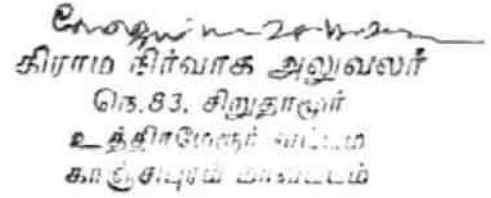 கிராம நிர்வாக அலுவலர்
நெ.83. சிறுதாமூர்
உத்திரமேரூர் வட்டம்
காஞ்சிபுரம் மாவட்டம்